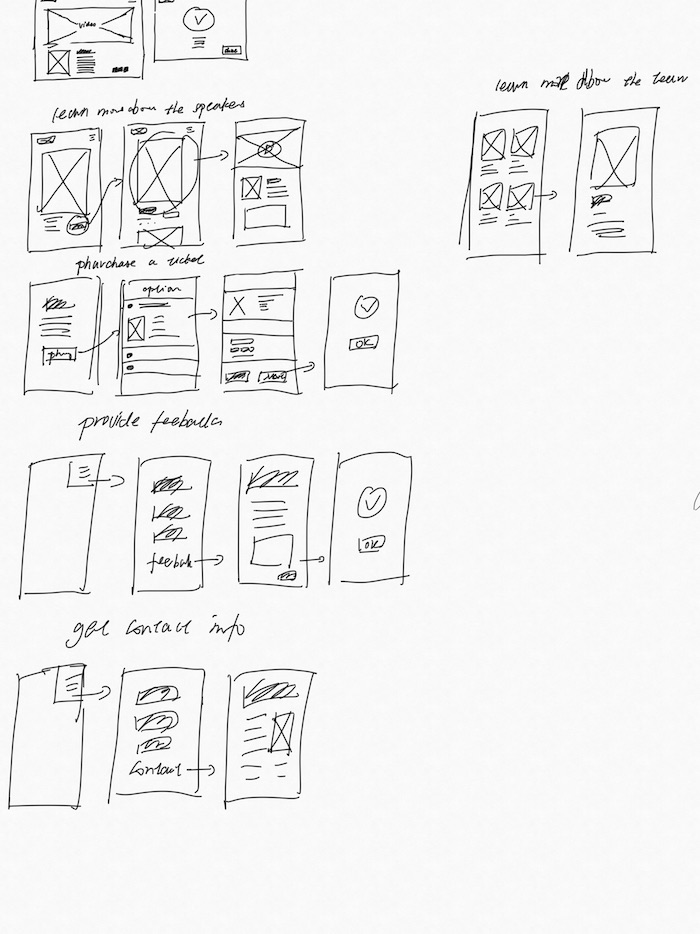 video
learn more abou the speakers
learn more abou the team
phurchase a ticket
option
OK
provide feebacks
feeback
OK
get contact info
Contact